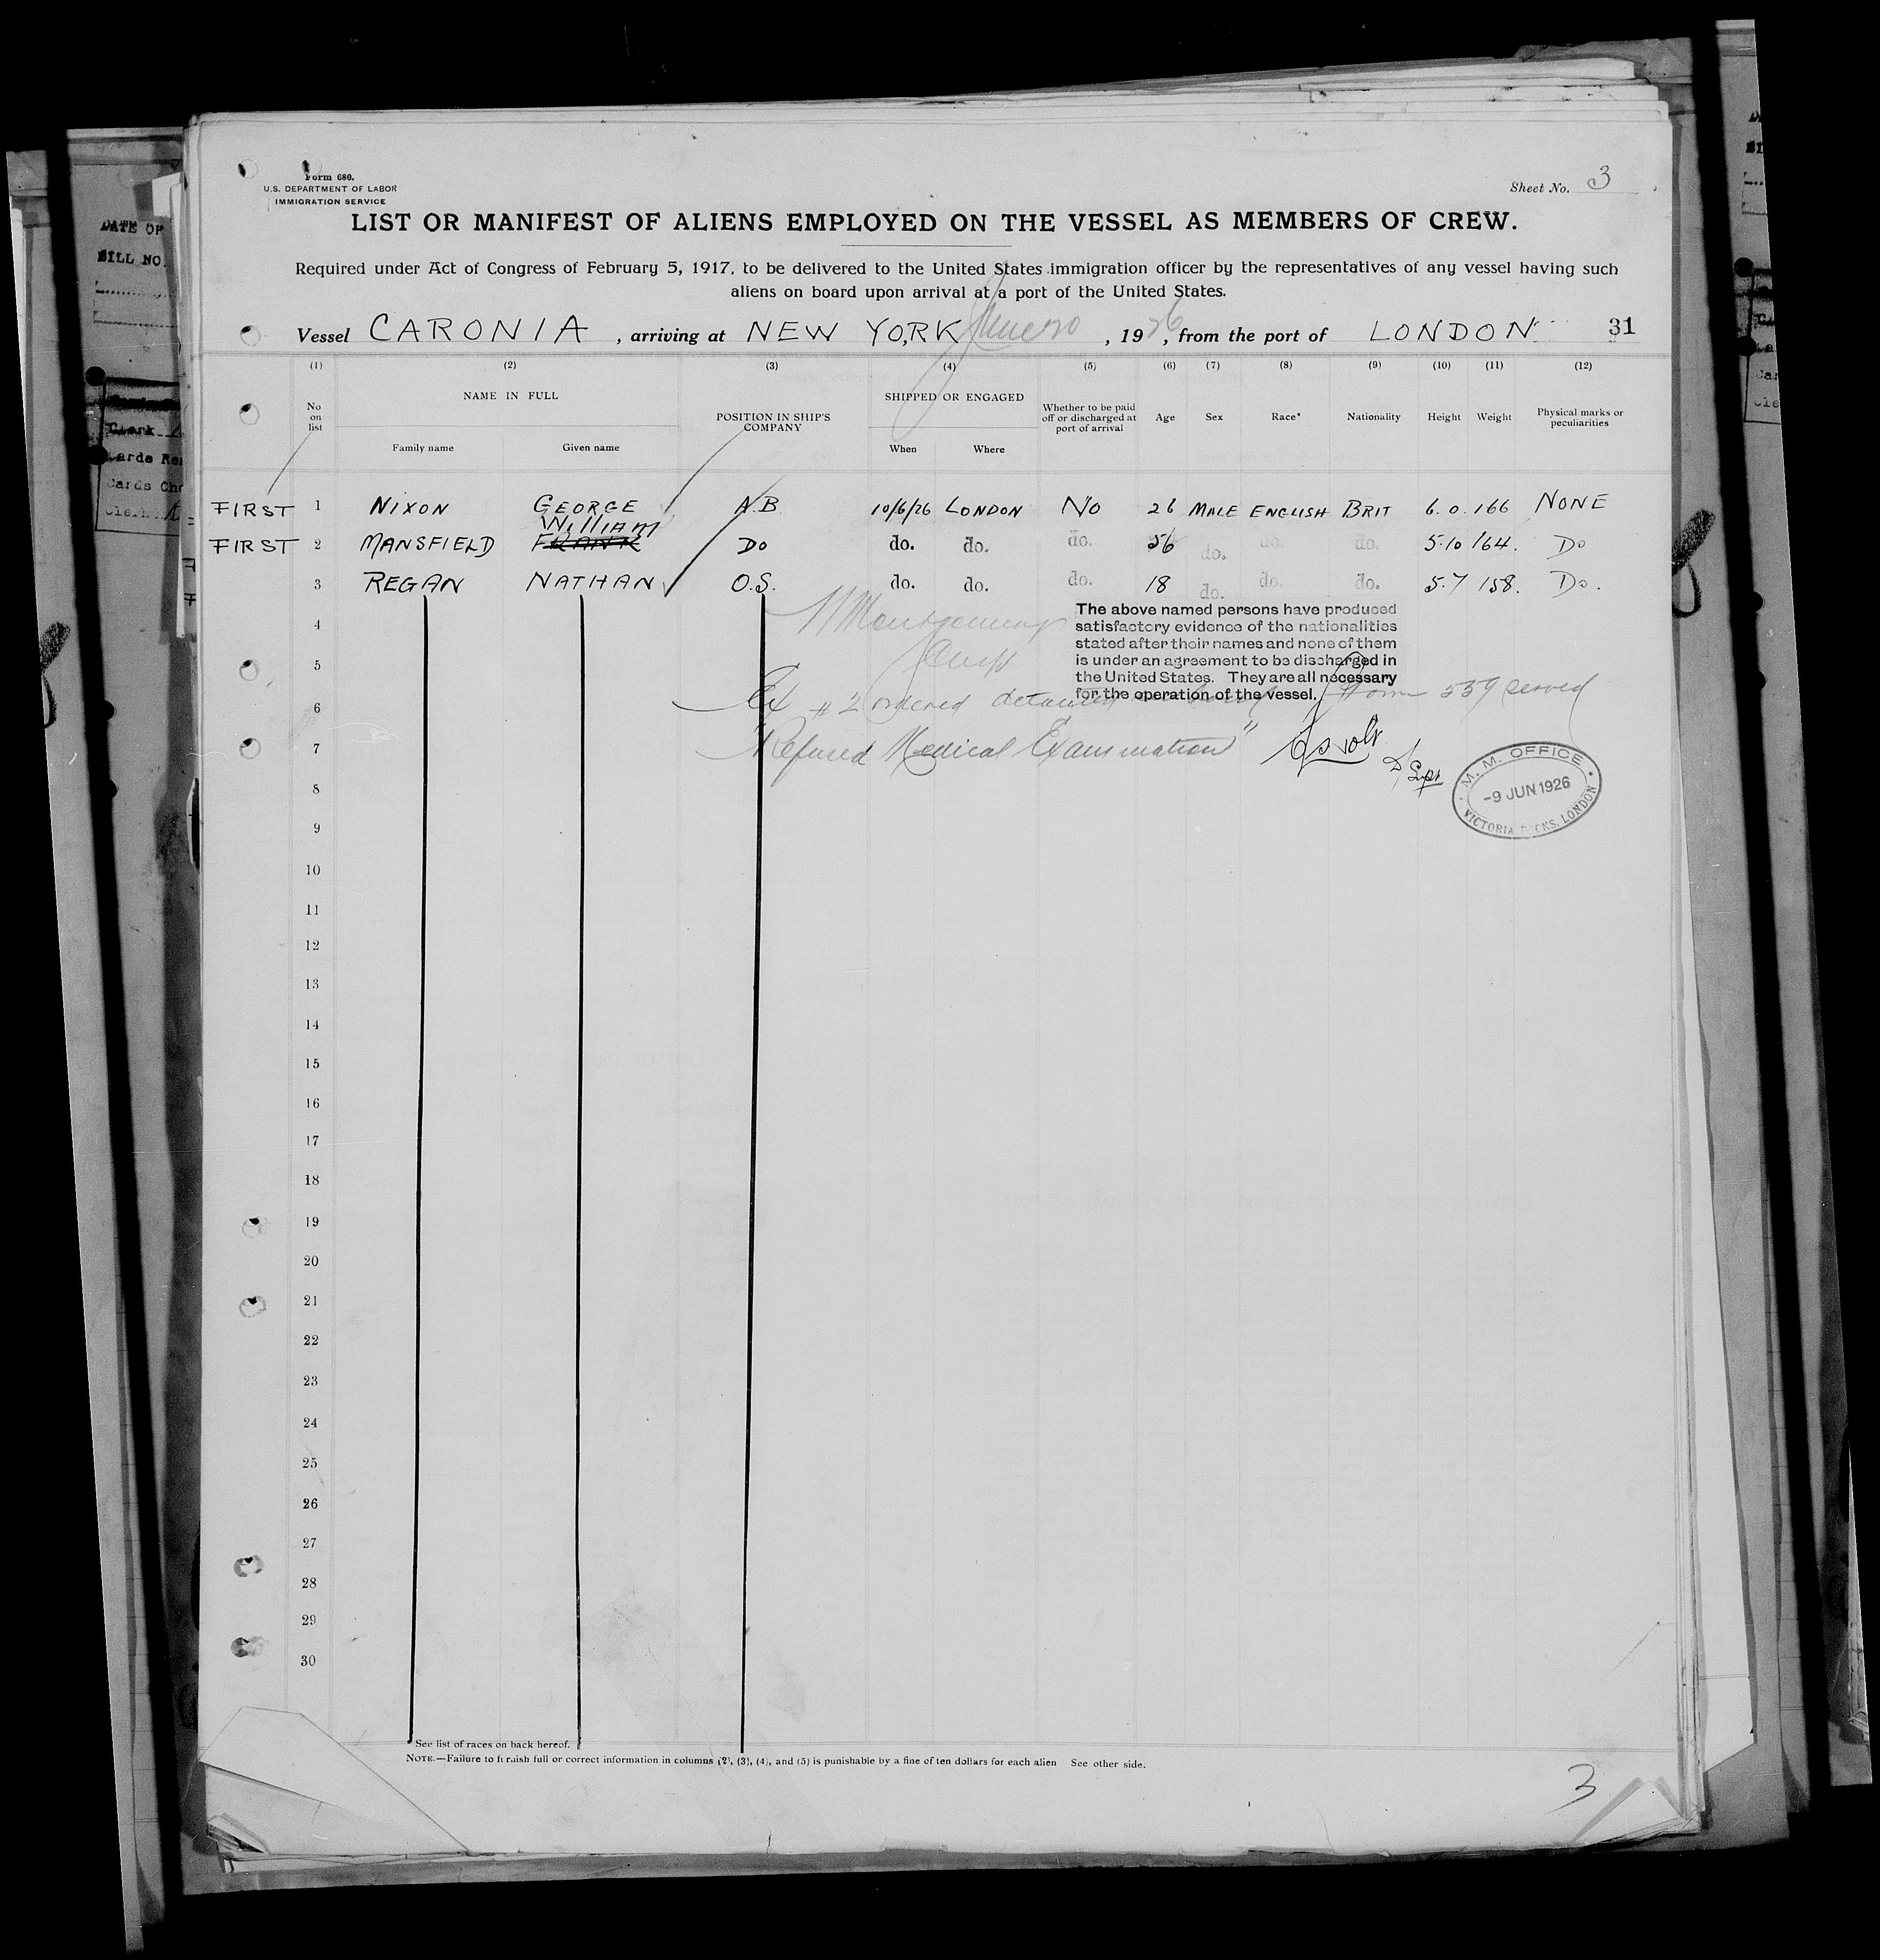 Form 680.
U.S. DEPARTMENT OF LABOR
IMMIGRATION SERVICE
Sheet No. 3
LIST OR MANIFEST OF ALIENS EMPLOYED ON THE VESSEL AS MEMBERS OF CREW.
Required under Act of Congress of February 5, 1917, to be delivered to the United States immigration officer by the representatives of any vessel having such
aliens on board upon arrival at a port of the United States.
Vessel CARONIA, arriving at NEW YORK, 1926, from the port of LONDON 31
(1) (2) (3) (4) (5) (6) (7) (8) (9) (10) (11) (12)
No on list NAME IN FULL Family name Given name POSITION IN SHIP'S COMPANY SHIPPED OR ENGAGED When Where Whether to be paid off or discharged at port of arrival Age Sex Race* Nationality Height Weight Physical marks or peculiarities
FIRST 1 NIXON GEORGE A.B. 10/6/26 LONDON NO 26 MALE ENGLISH BRIT 6.0. 166 NONE
William
FIRST 2 MANSFIELD FRANK DO do. do. do. 56 do. do. do. 5.10 164. Do
3 REGAN NATHAN O.S. do. do. do. 18 do. do. do. 5.7 158. Do.
The above named persons have produced
satisfactory evidence of the nationalities
stated after their names and none of them
is under an agreement to be discharged in
the United States. They are all necessary
for the operation of the vessel.
Montgomery
Ex #2 ordered detained Form 539 served
"Refused Medical Examination"
M. M. OFFICE
-9 JUN 1926
VICTORIA DOCKS, LONDON
4
5
6
7
8
9
10
11
12
13
14
15
16
17
18
19
20
21
22
23
24
25
26
27
28
29
30
See list of races on back hereof.
NOTE.—Failure to furnish full or correct information in columns (2), (3), (4), and (5) is punishable by a fine of ten dollars for each alien See other side.
3
DATE OF
BILL NO.
Clerk
Cards Che